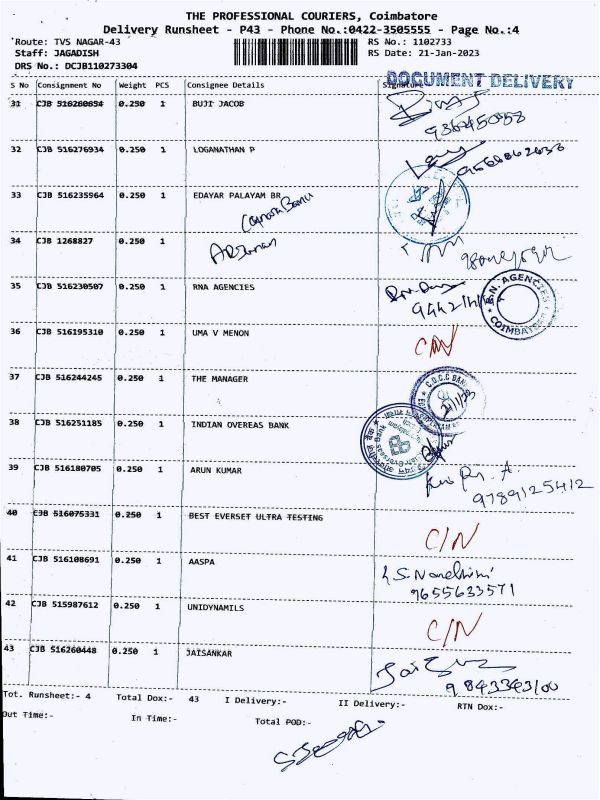 THE PROFESSIONAL COURIERS, Coimbatore
Delivery Runsheet - P43 - Phone No.:0422-3505555 - Page No.:4
Route: TVS NAGAR-43 RS No.: 1102733
Staff: JAGADISH RS Date: 21-Jan-2023
DRS No.: DCJB110273304
DOCUMENT DELIVERY
S No Consignment No Weight PCS Consignee Details Signature
31 CJB 516260654 0.250 1 BUJI JACOB
32 CJB 516276934 0.250 1 LOGANATHAN P
33 CJB 516235964 0.250 1 EDAYAR PALAYAM BR
Canara Bank
34 CJB 1268827 0.250 1
35 CJB 516230507 0.250 1 RNA AGENCIES
R.N. AGENCIES
COIMBATORE
36 CJB 516195310 0.250 1 UMA V MENON
C/N
37 CJB 516244245 0.250 1 THE MANAGER
21/1/23
38 CJB 516251185 0.250 1 INDIAN OVEREAS BANK
39 CJB 516180705 0.250 1 ARUN KUMAR
9789125412
40 CJB 516075331 0.250 1 BEST EVERSET ULTRA TESTING
C/N
41 CJB 516108691 0.250 1 AASPA
9655633571
42 CJB 515987612 0.250 1 UNIDYNAMILS
C/N
43 CJB 516260448 0.250 1 JAISANKAR
9843343100
Tot. Runsheet:- 4 Total Dox:- 43 I Delivery:- II Delivery:- RTN Dox:-
Out Time:- In Time:- Total POD:-